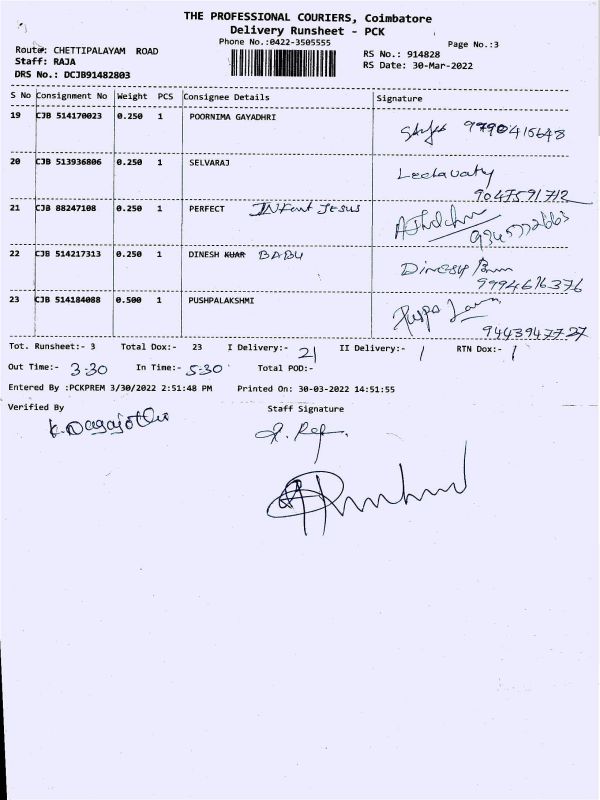 THE PROFESSIONAL COURIERS, Coimbatore
Delivery Runsheet - PCK
Phone No.:0422-3505555
Page No.:3
Route: CHETTIPALAYAM ROAD
RS No.: 914828
Staff: RAJA
RS Date: 30-Mar-2022
DRS No.: DCJB91482803
S No Consignment No Weight PCS Consignee Details Signature
19 CJB 514170023 0.250 1 POORNIMA GAYADHRI 9790415648
20 CJB 513936806 0.250 1 SELVARAJ Leelavathy
9047591712
21 CJB 88247108 0.250 1 PERFECT INfant Jesus
22 CJB 514217313 0.250 1 DINESH KUAR BABU Dinesh
9994616376
23 CJB 514184088 0.500 1 PUSHPALAKSHMI
9443947727
Tot. Runsheet:- 3 Total Dox:- 23 I Delivery:- 21 II Delivery:- / RTN Dox:- /
Out Time:- 3-30 In Time:- 5-30 Total POD:-
Entered By :PCKPREM 3/30/2022 2:51:48 PM Printed On: 30-03-2022 14:51:55
Verified By Staff Signature